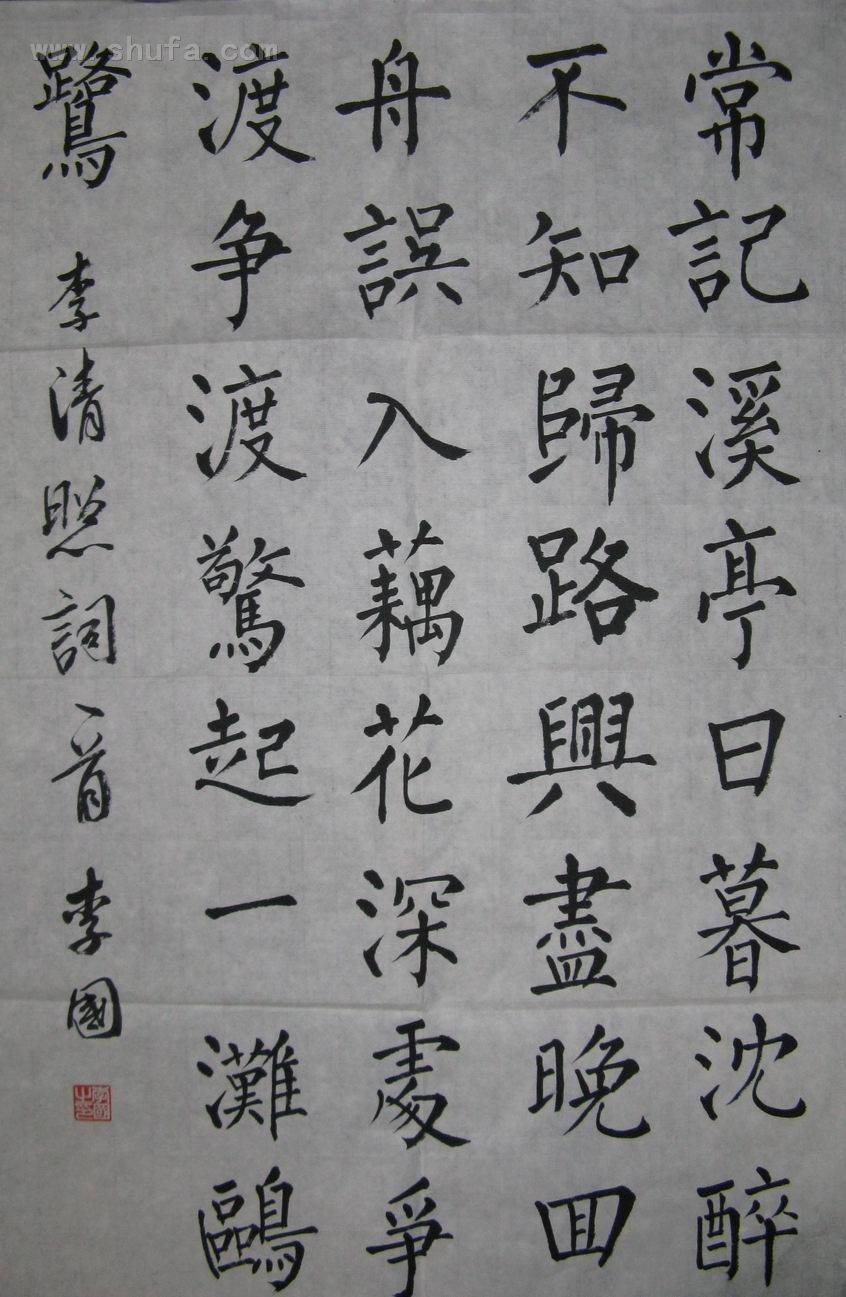 常記溪亭日暮沈醉
不知歸路興盡晚回
舟誤入藕花深處爭
渡争渡驚起一灘鷗
鷺 李清照詞一首 李國
www.shufa.com